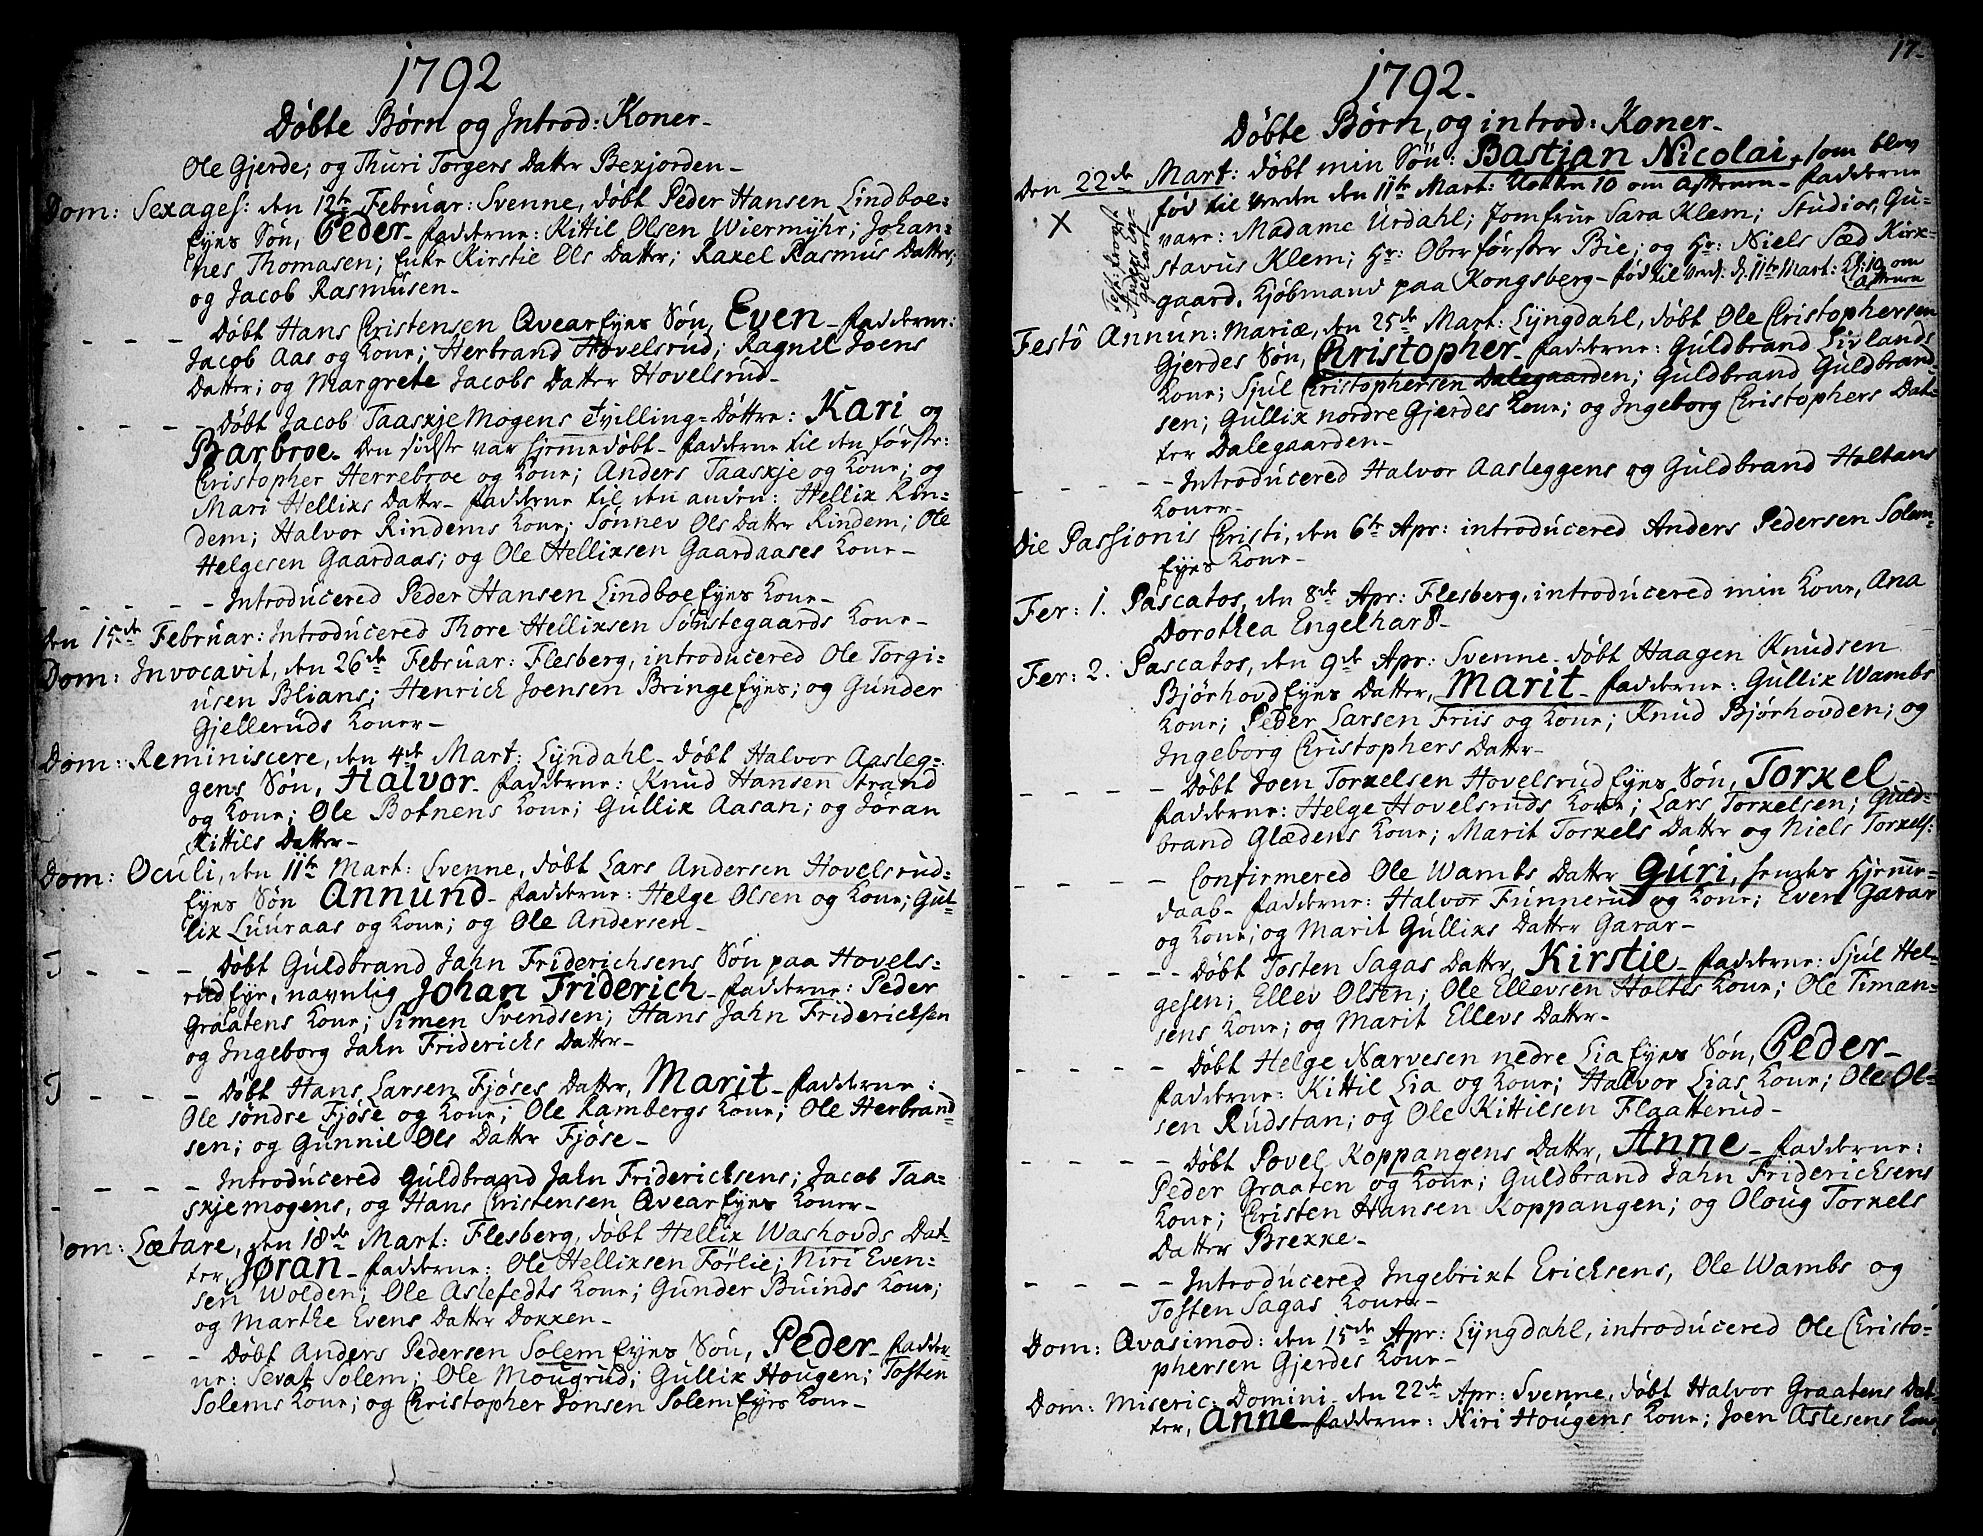 1792
Døbte Børn og Introd: Koner-
Ole Gjerde; og Thuri Torgers Datter Bexjorden-
Dom: Sexages: den 12te Februar: Svenne, døbt Peder Hansen Lindboe=
Eyes Søn, Peder- fadderne: Kittil Olsen Wiermyhr; Johan=
nes Thomasen; Enke Kirstie Ols Datter; Raxel Rasmus Datter;
og Jacob Rasmusen-
- - - - Døbt Hans Christensen QvearEyes Søn, Even- fadderne:
Jacob Aas og Kone; Herbrand Hovelsrud; Ragnil Joens
Datter; og Margrete Jacobs Datter Hovelsrud-
- - - - Døbt Jacob Taaskje Mogens Tvilling=Døttre: Kari og
Barbroe- Den sidste var hjemmedøbt- fadderne til den første:
Christopher Herrebroe og Kone; Anders Taaskje og Kone; og
Mari Hellixs Datter- fadderne til den anden: Hellix Rin=
dem; Halvor Rindems Kone; Sønnev Ols Datter Rindem; Ole
Helgesen Gaardaas; og Ole Hellixsen Gaardaases Kone-
- - - - Introducered Peder Hansen LindboeEyes Kone-
den 15de Februar: Introducered Thore Hellixsen Sønstegaards Kone-
Dom: Invocavit, den 26de Februar: Flesberg, introducered Ole Torgi=
usen Blians; Henrich Joensen BringeEyes; og Gunder
Gjelleruds Koner-
Dom: Reminiscere, den 4de Mart: Lyndahl- døbt Halvor Aasleg=
gens Søn, Halvor- fadderne: Knud Hansen Strand
og Kone; Ole Botnens Kone; Gullix Aasan; og Jøran
Kittils Datter-
Dom: Oculi, den 11te Mart: Svenne, døbt Lars Andersen Hovelsrud=
Eyes Søn Annund- fadderne: Helge Olsen og Kone; Gul=
lix Luuraas og Kone; og Ole Andersen-
T - - - Døbt Guldbrand Jahn Friderichsens Søn paa Hovels=
rudEye, navnlig Johan Friderich- fadderne: Peder
Graatens Kone; Simen Svendsen; Hans Jahn Friderichsen
og Ingeborg Jahn Friderichs Datter-
T - - - Døbt Hans Larsen Fjøses Datter, Marit- fadderne:
Ole søndre Fjøse og Kone; Ole Rambergs Kone; Ole Herbrand=
sen; og Gunnil Ols Datter Fjøse-
- - - Introducered Guldbrand Jahn Friderichsens; Jacob Taa=
skjemogens, og Hans Christensen QvearEyes Koner-
Dom: Lætare, den 18de Mart: Flesberg, døbt Hellix Washovds Dat=
ter, Jøran- fadderne: Ole Hellixsen Førlie; Niri Even=
sen Wolden; Ole Aslefedts Kone; Gunder Buinds Kone;
og Marthe Evens Datter Dokken-
- - - Døbt Anders Pedersen SolemEyes Søn, Peder- fadder=
ne: Sevat Solem; Ole Mougrud; Gullix Hougen; Tosten
Solems Kone; og Christopher Jonsen SolemEyes Kone-
17-
1792-
Døbte Børn, og introd: Koner-
Den 22de Mart: døbt min Søn: Bastjan Nicolai, som blev
fød til Verden den 11te Mart: Klokken 10 om Aftenen- fadderne
X
vare: Madame Urdahl; Jomfrue Sara Klem; Studios, Gu=
stavus Klem; Hr: Oberførster Bie; og Hr: Niels Sæd Kirx=
gaard, Kjøbmand paa Kongsberg- fød til Verd: d: 11te Mart: Kl: 10 om
Aftenen
Festô Annun: Mariæ, den 25de Mart: Lyngdahl, døbt Ole Christophersen
Gjerdes Søn, Christopher- fadderne: Guldbrand Livlands
Kone; Sjul Christophersen Dalegaarden; Guldbrand Guldbrand=
sen; Gullix nordre Gjerdes Kone; og Ingeborg Christophers Dat=
ter Dalegaarden-
- - - - Introducered Halvor Aasleggens og Guldbrand Holtans
Koner-
Die Passionis Christi, den 6te Apr: introducered Anders Pedersen Solem=
Eyes Kone-
Fer: 1. Pascatos, den 8de Apr: Flesberg, introducered min Kone, Ana
Dorothea Engelhart-
Fer: 2. Pascatos, den 9de Apr: Svenne- døbt Haagen Knudsen
BjørhovdEyes Datter, Marit- fadderne: Gullix Wambs
Kone; Peder Larsen Friis og Kone; Knud Bjørhovden; og
Ingeborg Christophers Datter-
- - - - Døbt Joen Torxelsen HovelsrudEyes Søn, Torxel-
fadderne: Helge Hovelsruds Kone; Lars Torxelsen; Guld=
brand Glædens Kone; Marit Torxels Datter og Niels Torxels:
- - - - Confirmered Ole Wambs Datter Guri, hendes Hjemme=
daab- fadderne: Halvor Funnerud og Kone; Even Garar
og Kone; og Marit Gullixs Datter Garar-
- - - - Døbt Tosten Sagas Datter, Kirstie- fadderne: Sjul Hel=
gesen; Ellev Olsen; Ole Ellevsen Holtes Kone; Ole Timan=
sens Kone; og Marit Ellevs Datter-
- - - - Døbt Helge Narvesen nedre LiaEyes Søn, Peder-
fadderne: Kittil Lia og Kone; Halvor Lias Kone; Ole Ol=
sen Rudstan; og Ole Kittilsen Flaatterud-
- - - - Døbt Povel Koppangens Datter, Anne- fadderne:
Peder Graaten og Kone; Guldbrand Jahn Friderichsens
Kone; Christen Hansen Koppangen; og Oloug Torxels
Datter Brekke-
- - - - Introducered Ingebrixt Ericksens, Ole Wambs og
Tosten Sagas Koner-
Dom: Qvasimod: den 15de Apr: Lyngdahl, introducered Ole Christo=
phersen Gjerdes Kone-
Dom: Miseric: Domini- den 22de Apr: Svenne, døbt Halvor Graatens Dat=
ter, Anne- fadderne: Niri Hougens Kone; Joen Aslesens Kone;